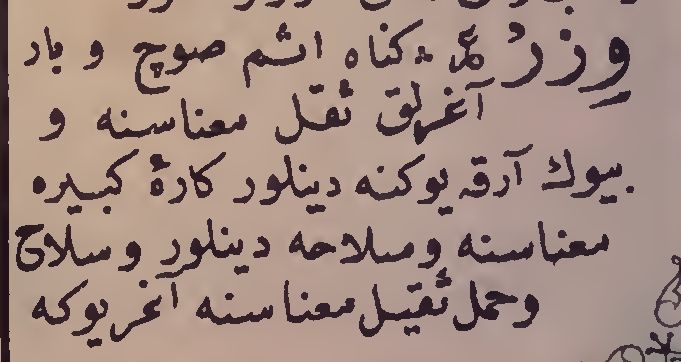 وِزْرٌ كناه اثم صوچ و بار
آغرلق ثقل معناسنه و
بیوك آرقه یوكنه دینلور كارهٔ كبیره
معناسنه وسلاحه دینلور وسلاح
وحمل ثقیل معناسنه آغر یوكه